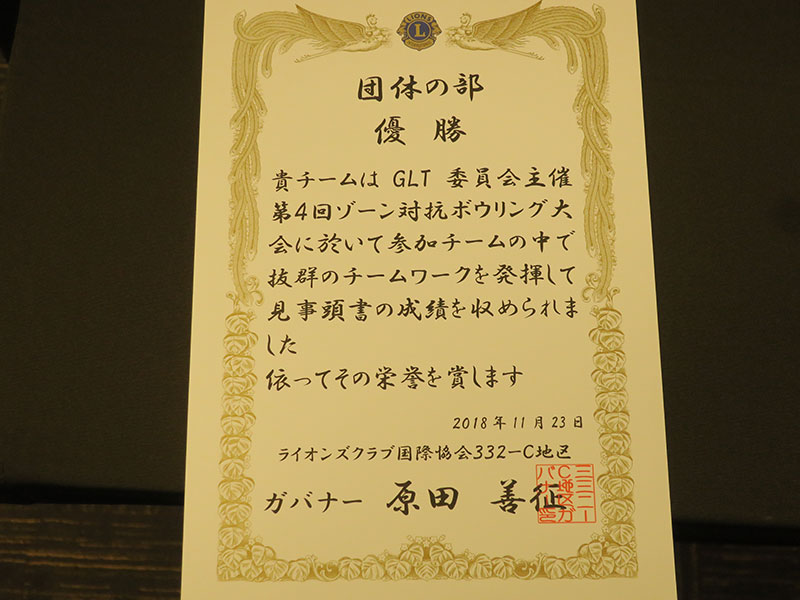 LIONS
L
団体の部
優勝
貴チームは GLT 委員会主催
第4回ゾーン対抗ボウリング大
会に於いて参加チームの中で
抜群のチームワークを発揮して
見事頭書の成績を収められま
した
依ってその栄誉を賞します
2018年11月23日
ライオンズクラブ国際協会332-C地区
ガバナー 原田 善征
三三二ー
C地区ガ
バナー印